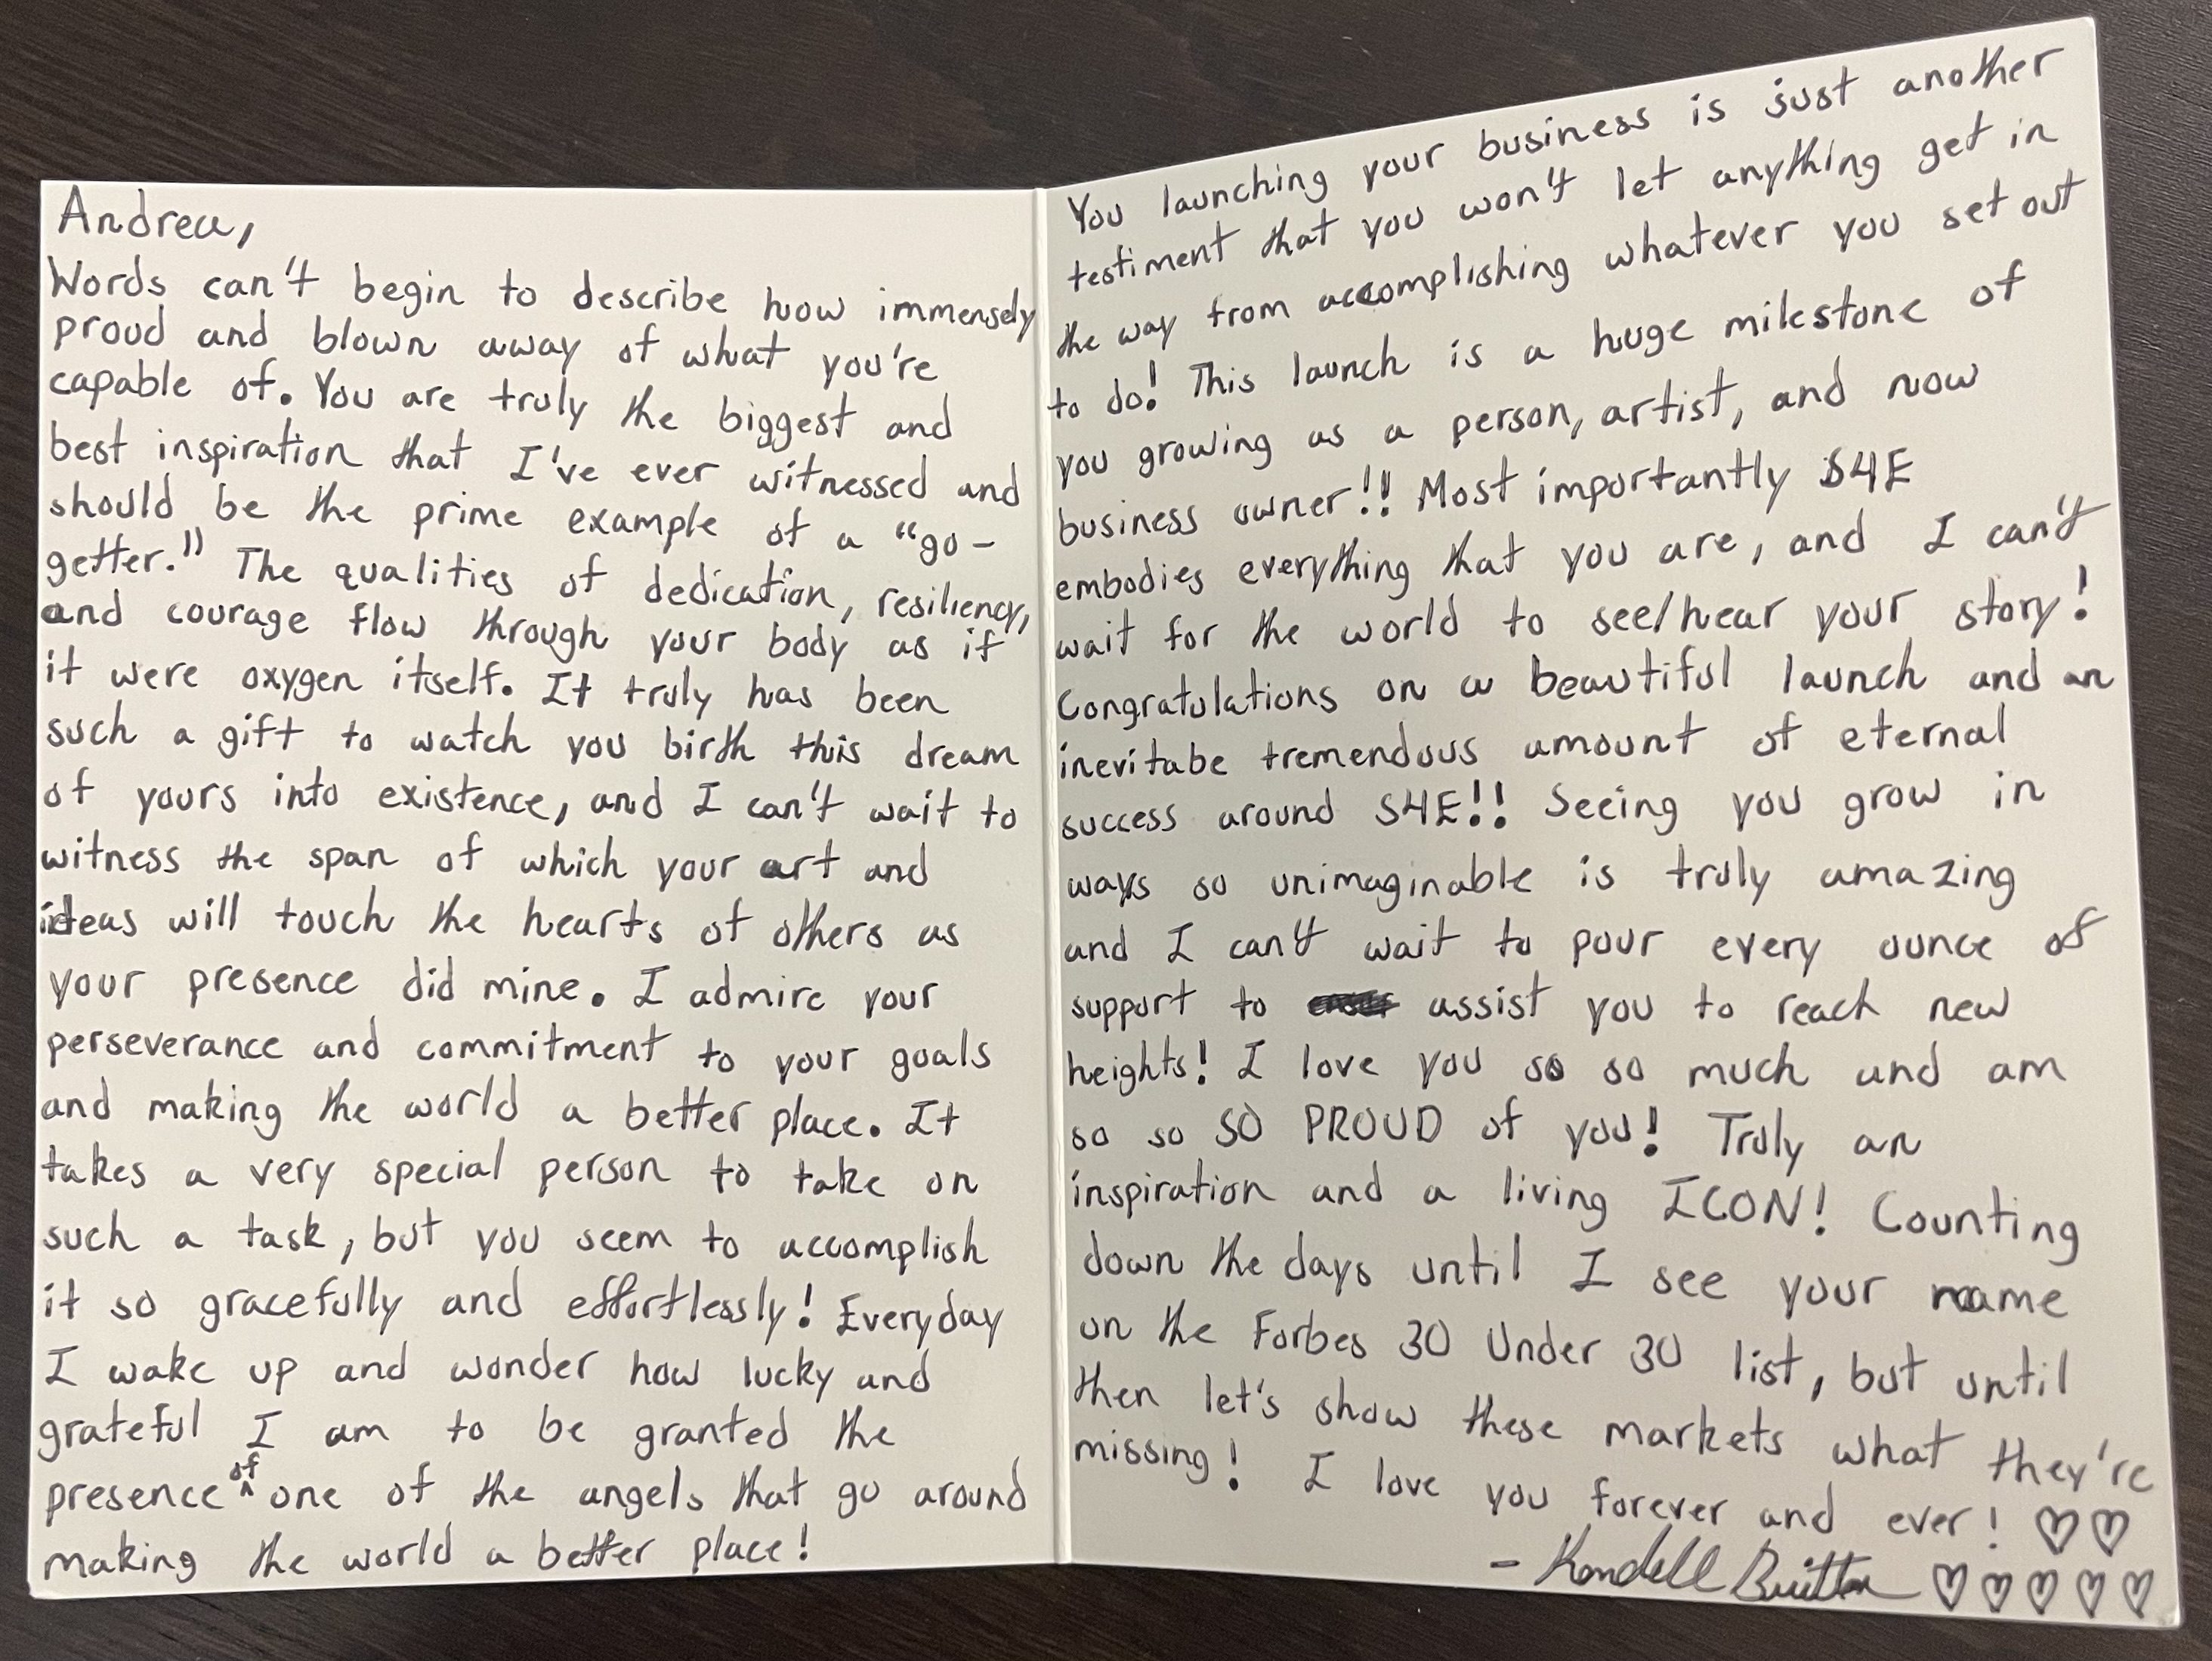 Andrea,
Words can't begin to describe how immensely
proud and blown away of what you're
capable of. You are truly the biggest and
best inspiration that I've ever witnessed and
should be the prime example of a "go-
getter." The qualities of dedication, resiliency,
and courage flow through your body as if
it were oxygen itself. It truly has been
such a gift to watch you birth this dream
of yours into existence, and I can't wait to
witness the span of which your art and
ideas will touch the hearts of others as
your presence did mine. I admire your
perseverance and commitment to your goals
and making the world a better place. It
takes a very special person to take on
such a task, but you seem to accomplish
it so gracefully and effortlessly! Everyday
I wake up and wonder how lucky and
grateful I am to be granted the
presence of one of the angels that go around
making the world a better place!
You launching your business is just another
testiment that you won't let anything get in
the way from accomplishing whatever you set out
to do! This launch is a huge milestone of
you growing as a person, artist, and now
business owner!! Most importantly S4E
embodies everything that you are, and I can't
wait for the world to see/hear your story!
Congratulations on a beautiful launch and an
inevitabe tremendous amount of eternal
success around S4E!! Seeing you grow in
ways so unimaginable is truly amazing
and I can't wait to pour every ounce of
support to assist you to reach new
heights! I love you so so much and am
so so SO PROUD of you! Truly an
inspiration and a living ICON! Counting
down the days until I see your name
on the Forbes 30 Under 30 list, but until
then let's show these markets what they're
missing! I love you forever and ever! ♡♡
- Kendell Britton ♡♡♡♡♡